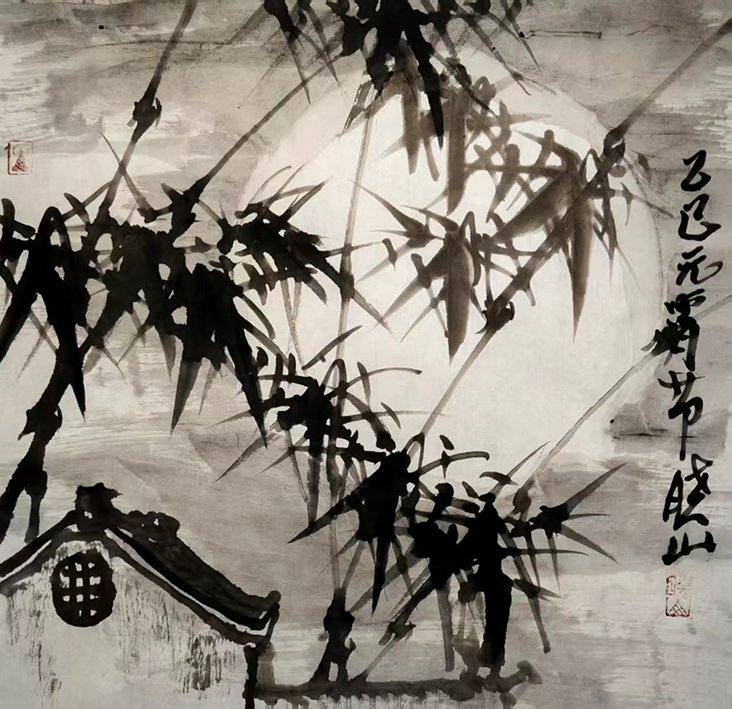 乙巳元宵节晓山